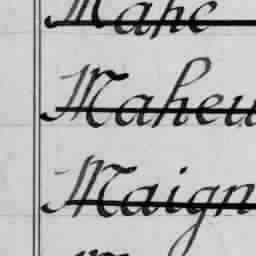 Mahe
Maheu
Maign